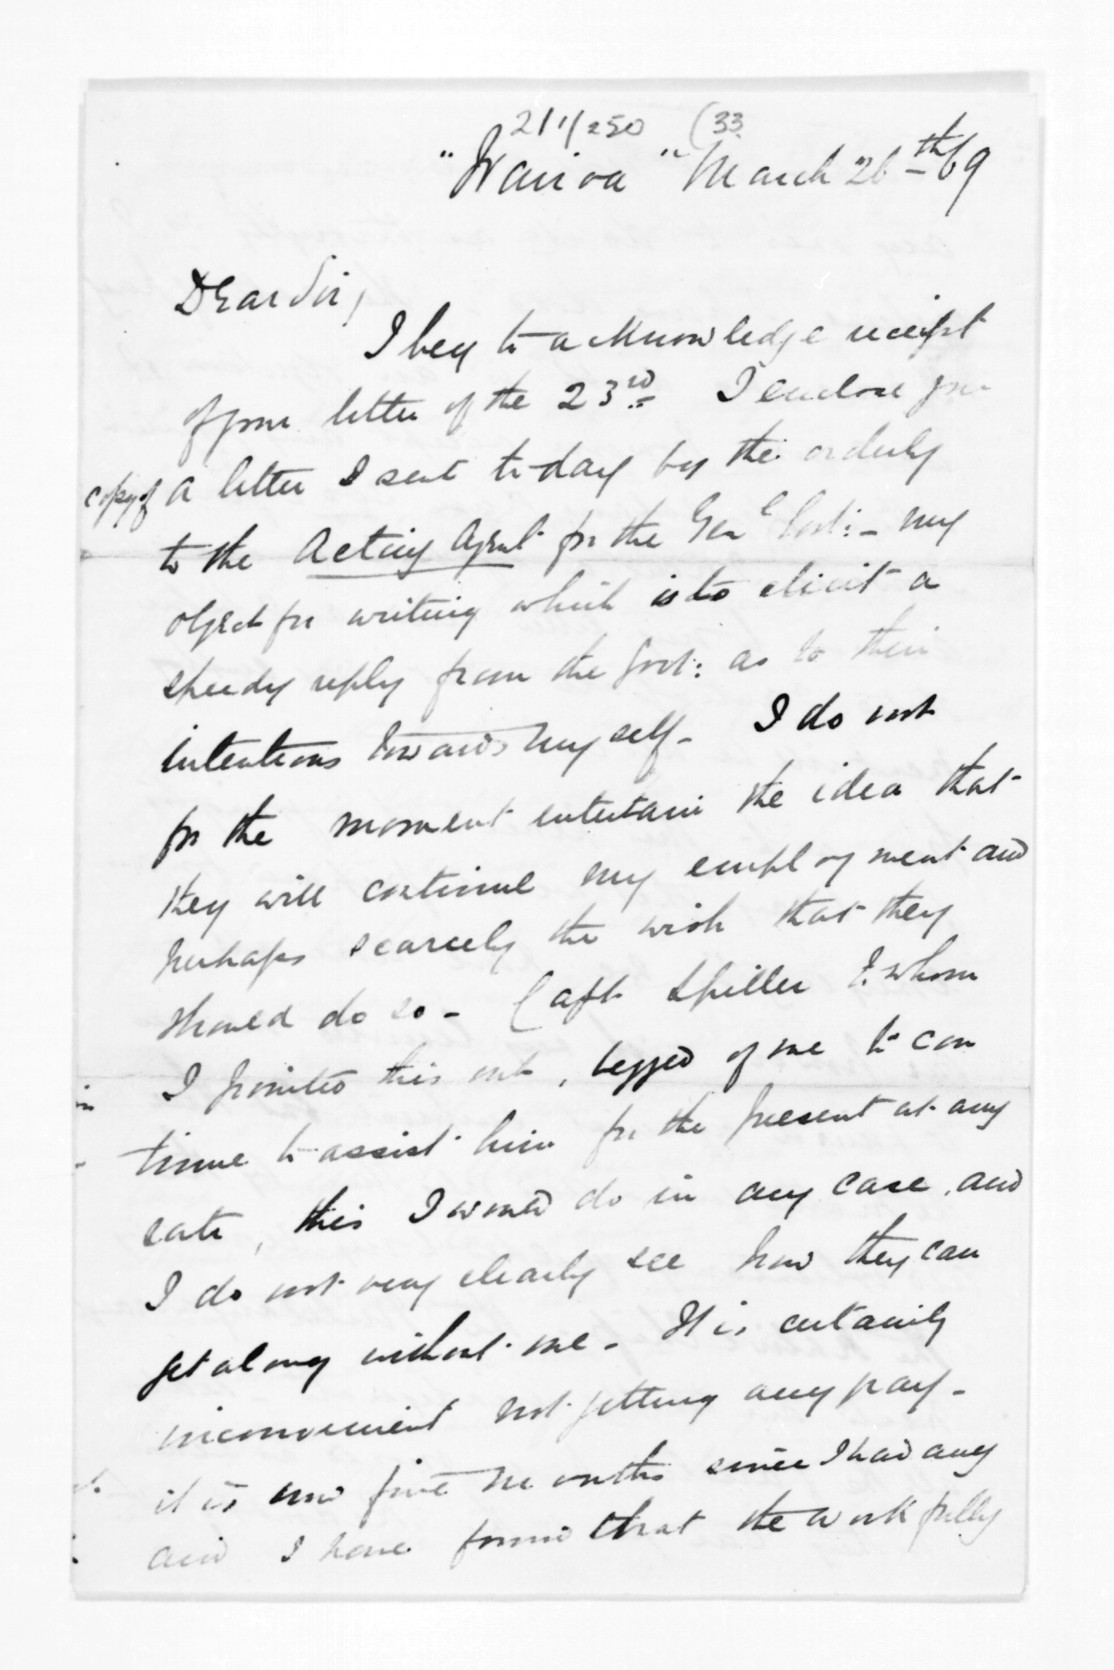 211/250 (33
"Wairoa" March 26th 69
Dear Sir,
I beg to acknowledge receipt
of your letter of the 23rd. I enclose you
copy of a letter I sent to-day by the orderly
to the Acting Agent for the Genl Govt: - my
object for writing which is to elicit a
speedy reply from the Govt: as to their
intentions towards myself - I do not
for the moment entertain the idea that
they will continue my employment and
perhaps scarcely the wish that they
should do so - Capt Spiller to whom
I pointed this out, begged of me to con
tinue to assist him for the present at any
rate, this I would do in any case, and
I do not very clearly see how they can
get along without me - It is certainly
inconvenient not getting any pay -
it is now five months since I had any
and I have found that the work fully